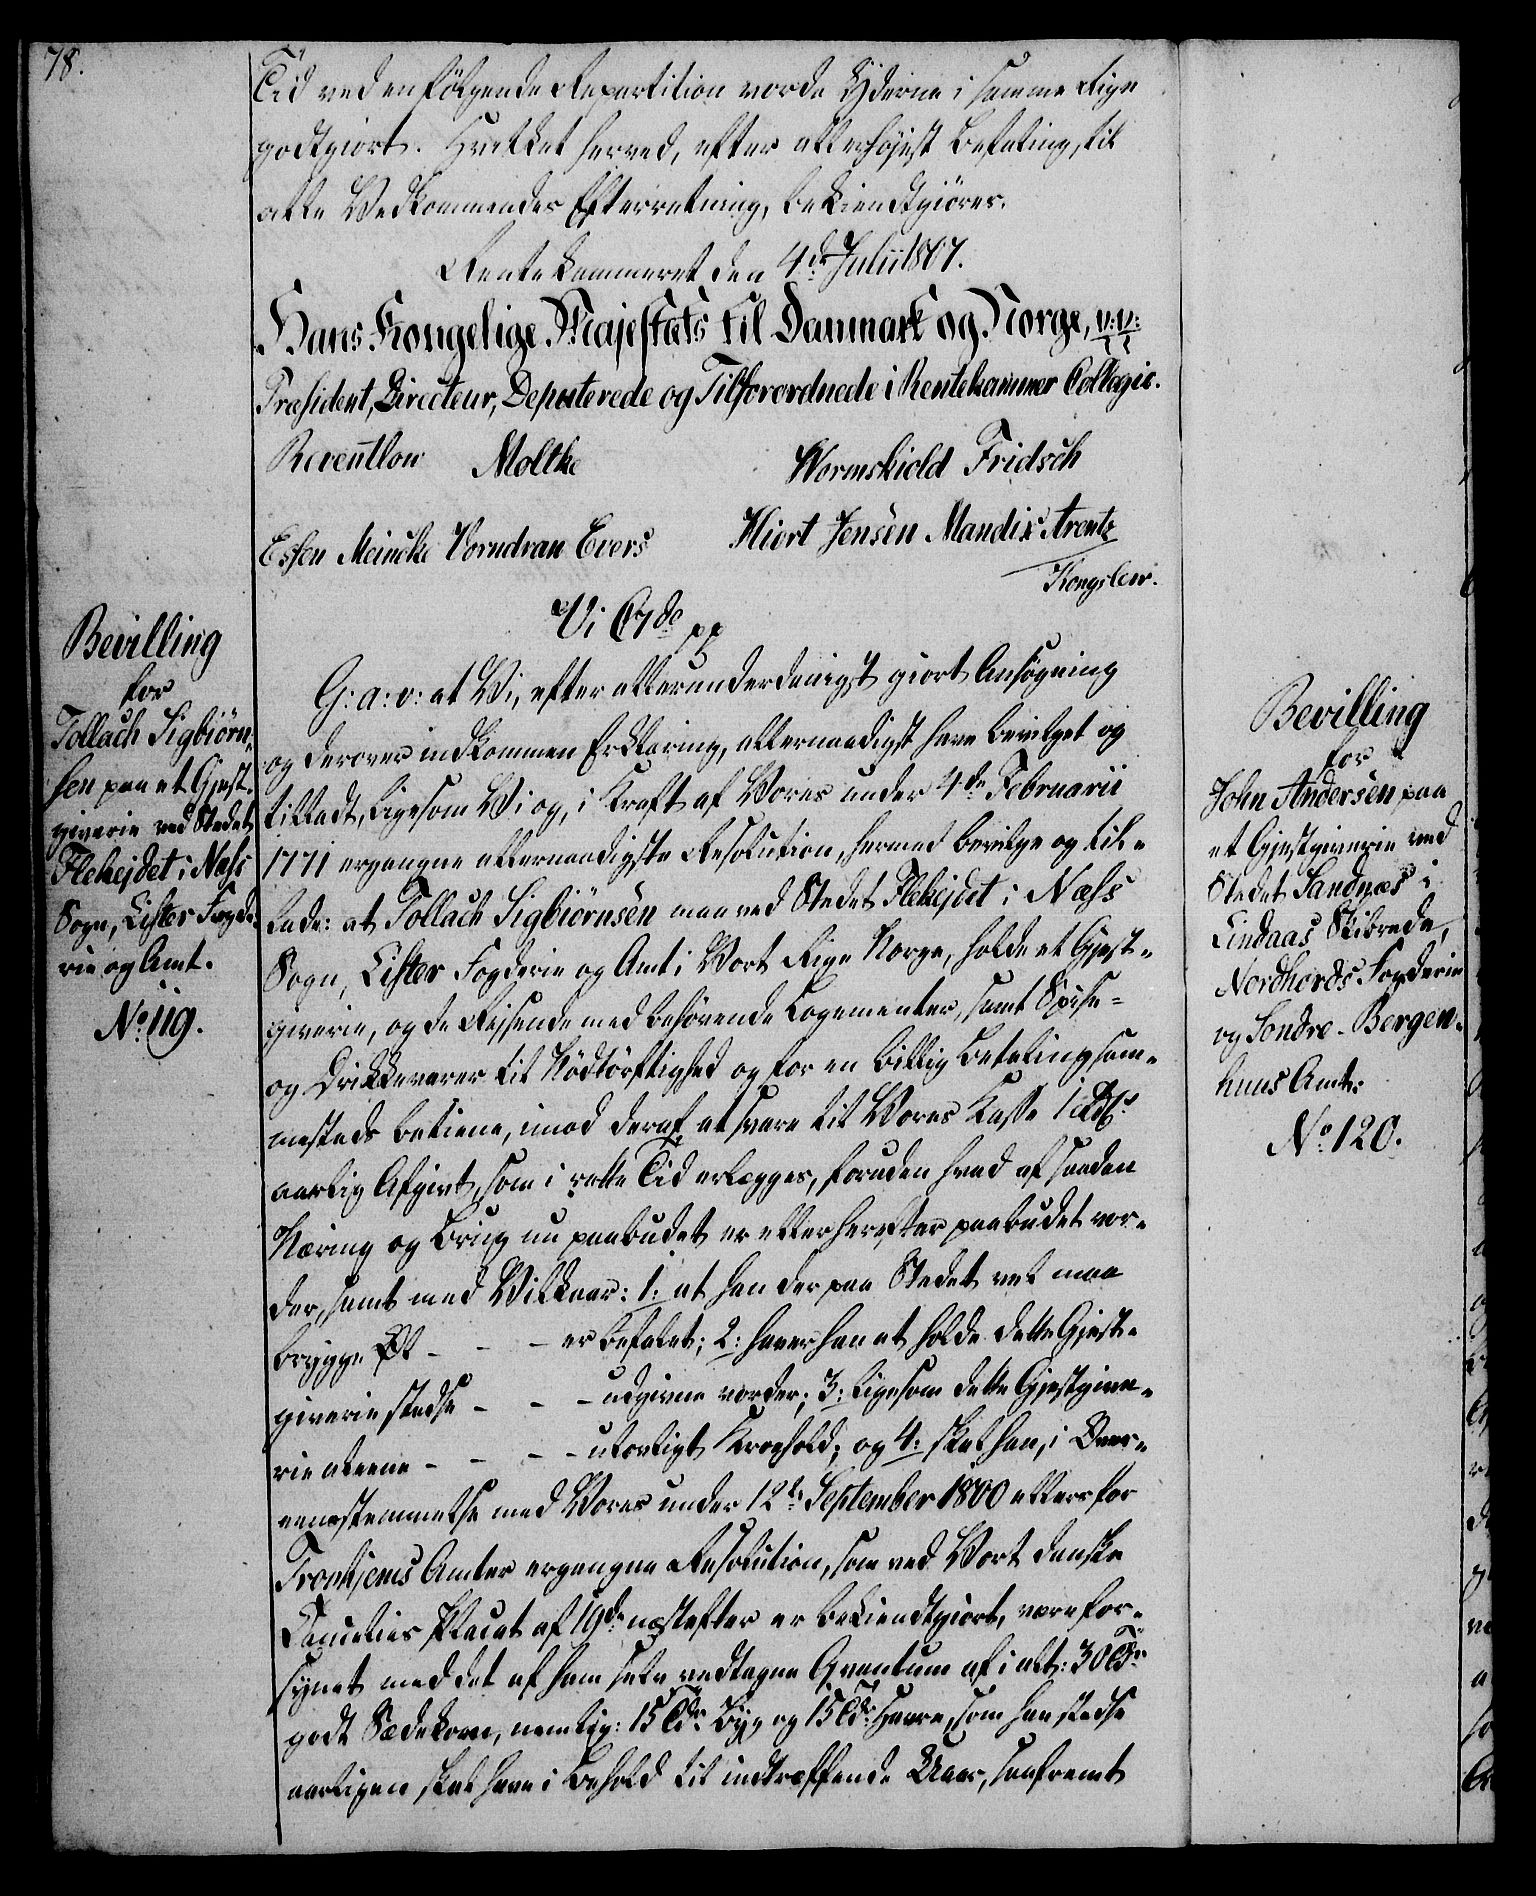 78.
Tid ved en fölgende Repartition vorde Yderne i samme Rige
godtgiort. Hvilket herved, efter allerhøjest Befaling, til
alle Vedkommendes Efterretning, bekiendtgiöres.
Rentekammeret den 4de Julii 1807.
Hans Kongelige Majestæts til Danmark og Norge, p: p:
Præsident, Directeur, Deputerede og Tilforordnede i Rentekammer Collegie.
Reventlow Moltke Wormskiold Fridsch
Essen Meincke Vorndran Evers Hiort Jensen Mandix Arentz
Kongslew.
Vi C 7de pp
G: a: v: at Vi, efter allerunderdanigst giort Ansøgning
og derover indkommen Erklæring, allernaadigst have bevilget og
tilladt, ligesom Vi og, i Kraft af Vores under 4de Februarii
1771 ergangne allernaadigste Resolution, hermed bevilge og til-
lade: at Tollach Sigbiörnsen maa ved Stedet Flekejdet i Næss
Sogn, Lister Fogderie og Amt i Vort Rige Norge, holde et Gjest-
giverie, og de Rejsende med behövende Logementer, samt Spise-
og Drikkevarer til Nödtörftighed og for en billig Betaling sam-
mesteds betiene, imod deraf at svare til Vores Kasse 1 Rdlr.
aarlig Afgivt, som i rette Tid erlægges, foruden hvad af saadan
Næring og Brug nu paabudet er eller herefter paabudet vor-
der, samt med Vilkaar: 1: at han der paa Stedet vel maa
brygge Øl - - - er befalet; 2: haver han at holde dette Gjest-
giverie stedse - - - udgivne vorder; 3: ligesom dette Gjestgive-
rie alene - - - - ulovligt Kroehold; og 4: skal han, i Over-
eensstemmelse med Vores under 12te September 1800 ellers for
Tronhjems Amter ergangne Resolution, som ved Vort danske
Cancelies Placat af 19de næstefter er bekiendtgiort, være for-
synet med det af ham selv vedtagne Qvantum af i alt: 30 Tdr
godt Sædekorn, nemlig: 15 Tdr. Byg og 15 Tdr. Havre, som han stedse
aarligen skal have i Behold til indtræffende Uaar, saafremt
Bevilling
for
Tollach Sigbiörn-
sen paa et Gjest-
giverie ved Stedet
Flekejdet i Næss
Sogn, Lister Fogde-
rie og Amt.
No. 119.
Bevilling
for
John Andersen paa
et Gjestgiverie ved
Stedet Sandnæs i
Lindaas Skibrede,
Nordhords Fogderie
og Söndre-Bergen-
huus Amt.
No. 120.